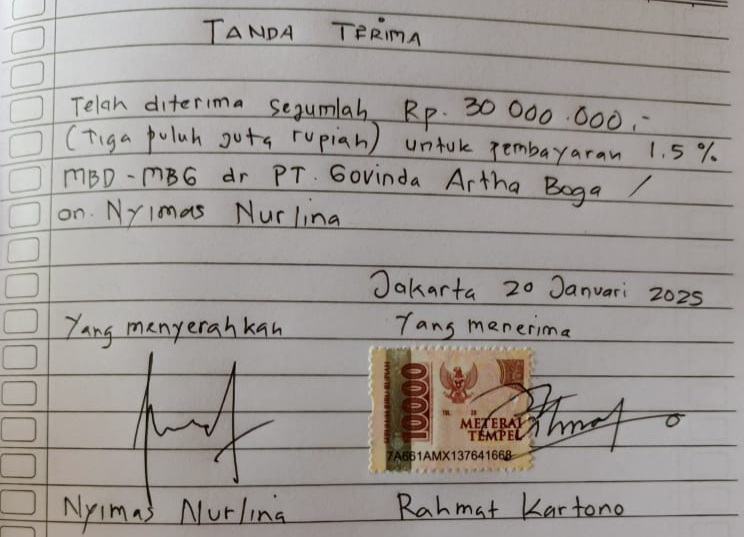 TANDA TERIMA
Telah diterima sejumlah Rp. 30 000.000,-
(Tiga puluh juta rupiah) untuk pembayaran 1.5 %
MBD - MBG dr PT. Govinda Artha Boga /
on. Nyimas Nurlina
Jakarta 20 Januari 2025
Yang menyerahkan Yang menerima
10000
METERAI
TEMPEL
7A661AMX137641668
Nyimas Nurlina Rahmat Kartono